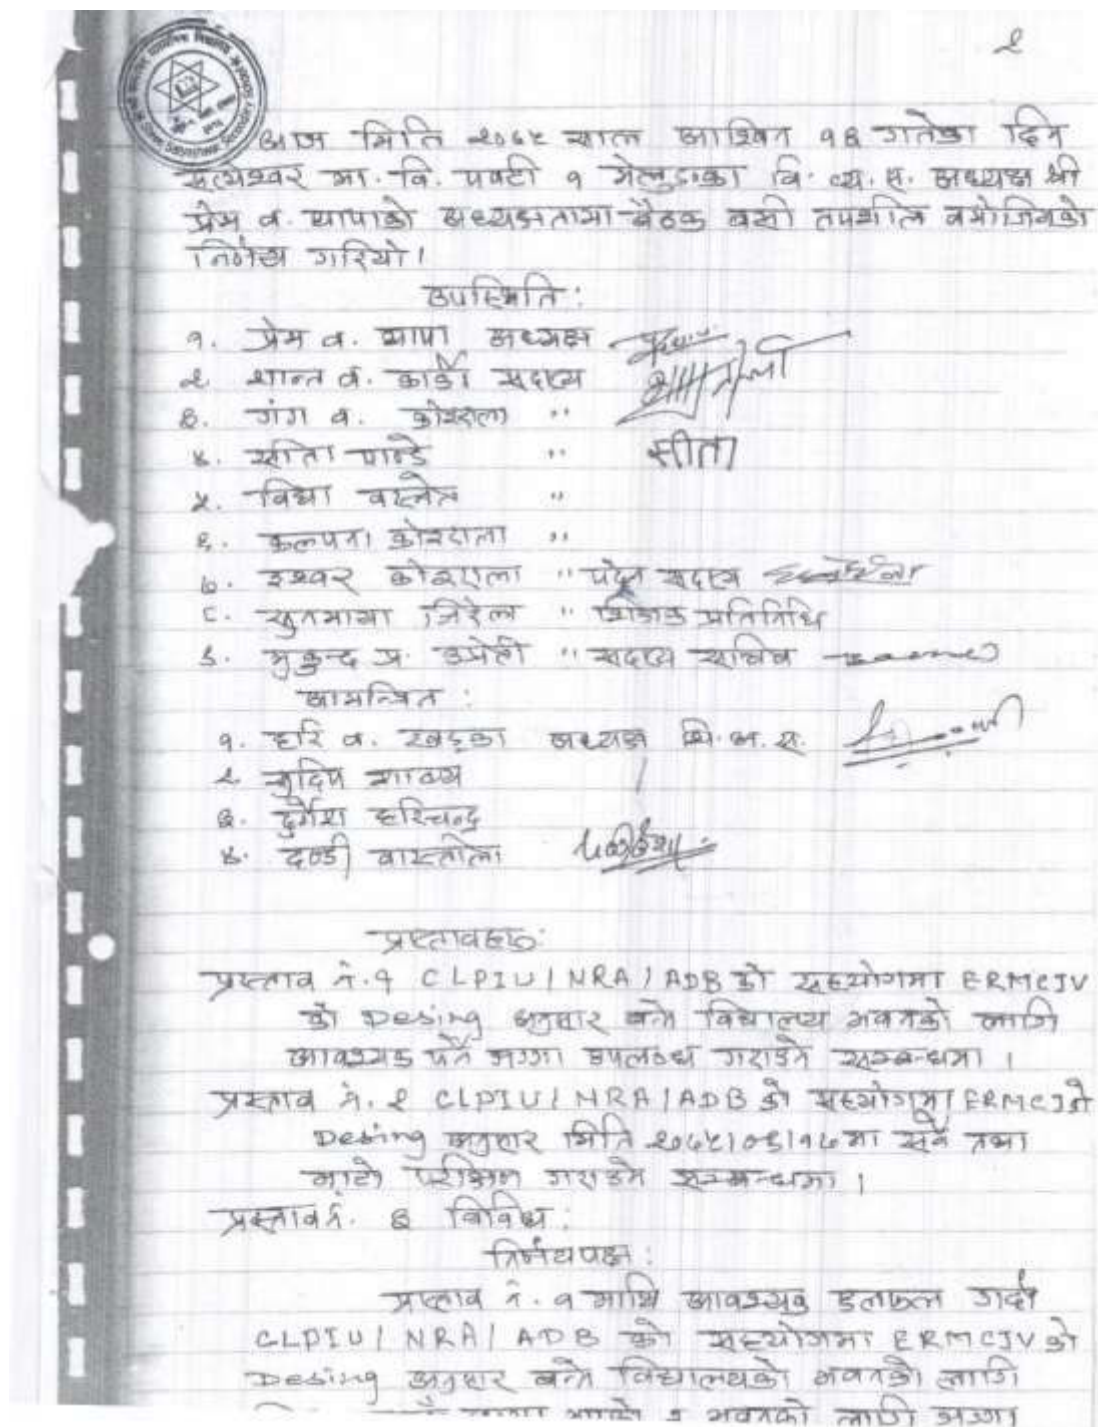 २
आज मिति २०७५ साल आश्विन १३ गतेका दिन
सत्येश्वर मा. वि. पवटी १ मेलुङका वि. व्य. स. अध्यक्ष श्री
प्रेम व. थापाको अध्यक्षतामा बैठक बसी तपशील बमोजिमको
निर्णय गरियो।
उपस्थिति:
१. प्रेम व. थापा अध्यक्ष
२. शान्त व. कार्की सदस्य
३. गंगा व. कोइराला "
४. सीता पाण्डे " सीता
५. विद्या बस्नेत "
६. कल्पना कोइराला "
७. इश्वर कोइराला " पदेन सदस्य
८. सुनमाया जिरेल " शिक्षक प्रतिनिधि
९. मुकुन्द प्र. उप्रेती " सदस्य सचिव
आमन्त्रित:
१. हरि व. खड्का अध्यक्ष शि. अ. स.
२. सुदिप शाक्य
३. दुर्गेश हरिचन्द्र
४. दण्डी वास्तोला
प्रस्तावहरु:
प्रस्ताव नं. १ CLPIU/NRA/ADB को सहयोगमा ERMCJV
को Desing अनुसार बन्ने विद्यालय भवनको लागि
आवश्यक पर्ने जग्गा उपलब्ध गराउने सम्बन्धमा ।
प्रस्ताव नं. २ CLPIU/NRA/ADB को सहयोगमा ERMCJको
Desing अनुसार मिति २०७५/०६/१७ मा सर्वे तथा
माटो परीक्षण गराउने सम्बन्धमा ।
प्रस्ताव नं. ३ विविध:
निर्णयपक्ष:
प्रस्ताव नं. १ माथि आवश्यक छलफल गर्दा
CLPIU/NRA/ADB को सहयोगमा ERMCJV को
Desing अनुसार बन्ने विद्यालयको भवनको लागि
भवनको लागि जग्गा